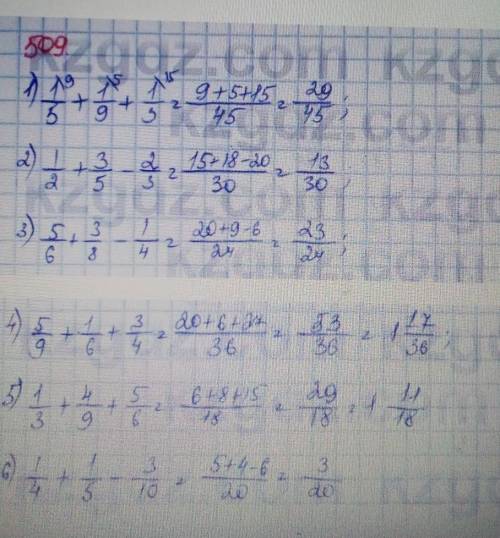 kzgdz.com kzgdz.com
509.
1) 1⁹/5 + 1⁵/9 + 1¹⁵/3 = (9+5+15)/45 = 29/45;
2) 1/2 + 3/5 - 2/3 = (15+18-20)/30 = 13/30;
3) 5/6 + 3/8 - 1/4 = (20+9-6)/24 = 23/24;
4) 5/9 + 1/6 + 3/4 = (20+6+27)/36 = 53/36 = 1 17/36;
5) 1/3 + 4/9 + 5/6 = (6+8+15)/18 = 29/18 = 1 11/18
6) 1/4 + 1/5 - 3/10 = (5+4-6)/20 = 3/20